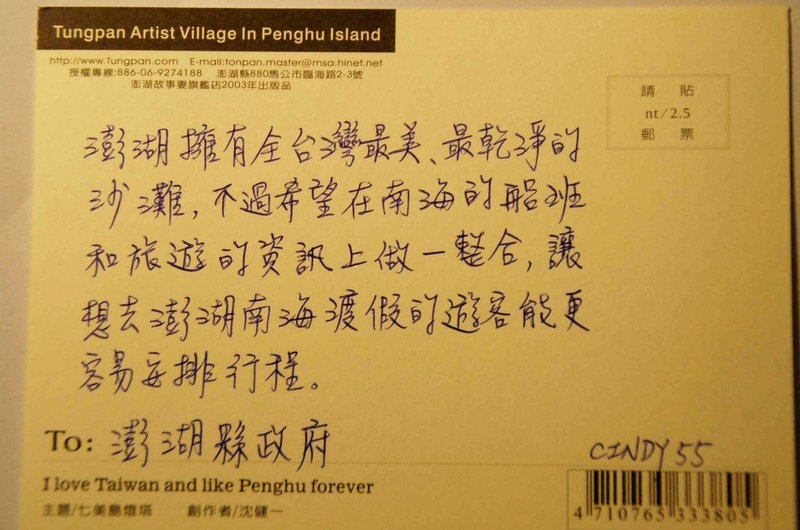 Tungpan Artist Village In Penghu Island
http://www.Tungpan.com E-mail:tonpan.master@msa.hinet.net
授權專線:886-06-9274188 澎湖縣880馬公市臨海路2-3號
澎湖故事妻旗艦店2003年出版品
請 貼
nt/2.5
郵 票
澎湖擁有全台灣最美、最乾淨的
沙灘，不過希望在南海的船班
和旅遊的資訊上做一整合，讓
想去澎湖南海渡假的遊客能更
容易安排行程。
To: 澎湖縣政府
CINDY 55
I love Taiwan and like Penghu forever
主題/七美島燈塔 創作者/沈健一
4 710765 333805